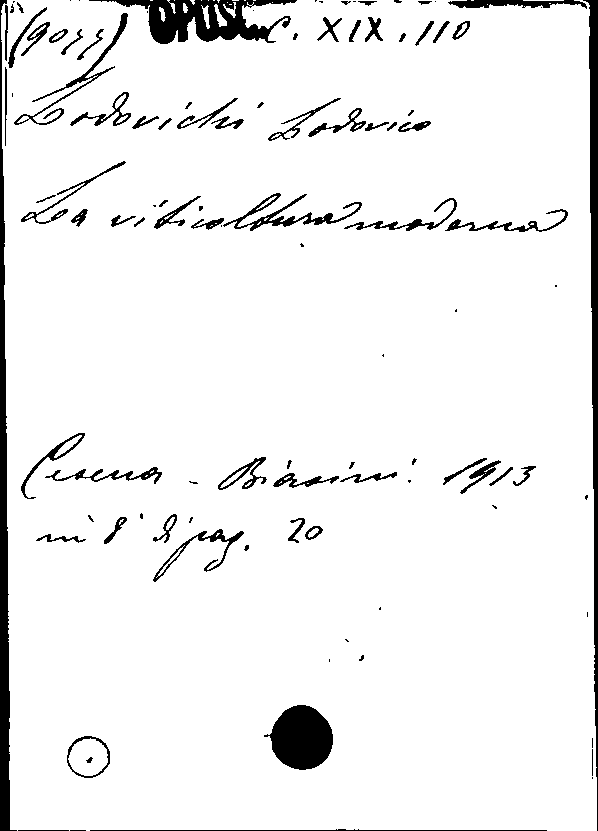 (9077) OPUSC. C. XIX. 110
Lodovichi Lodovico
La viticoltura moderna
Cesena - Biasini. 1913
in 8° di pag. 20